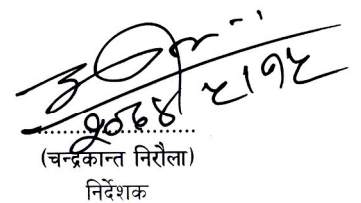 २०६४।५।१५
....................
(चन्द्रकान्त निरौला)
निर्देशक